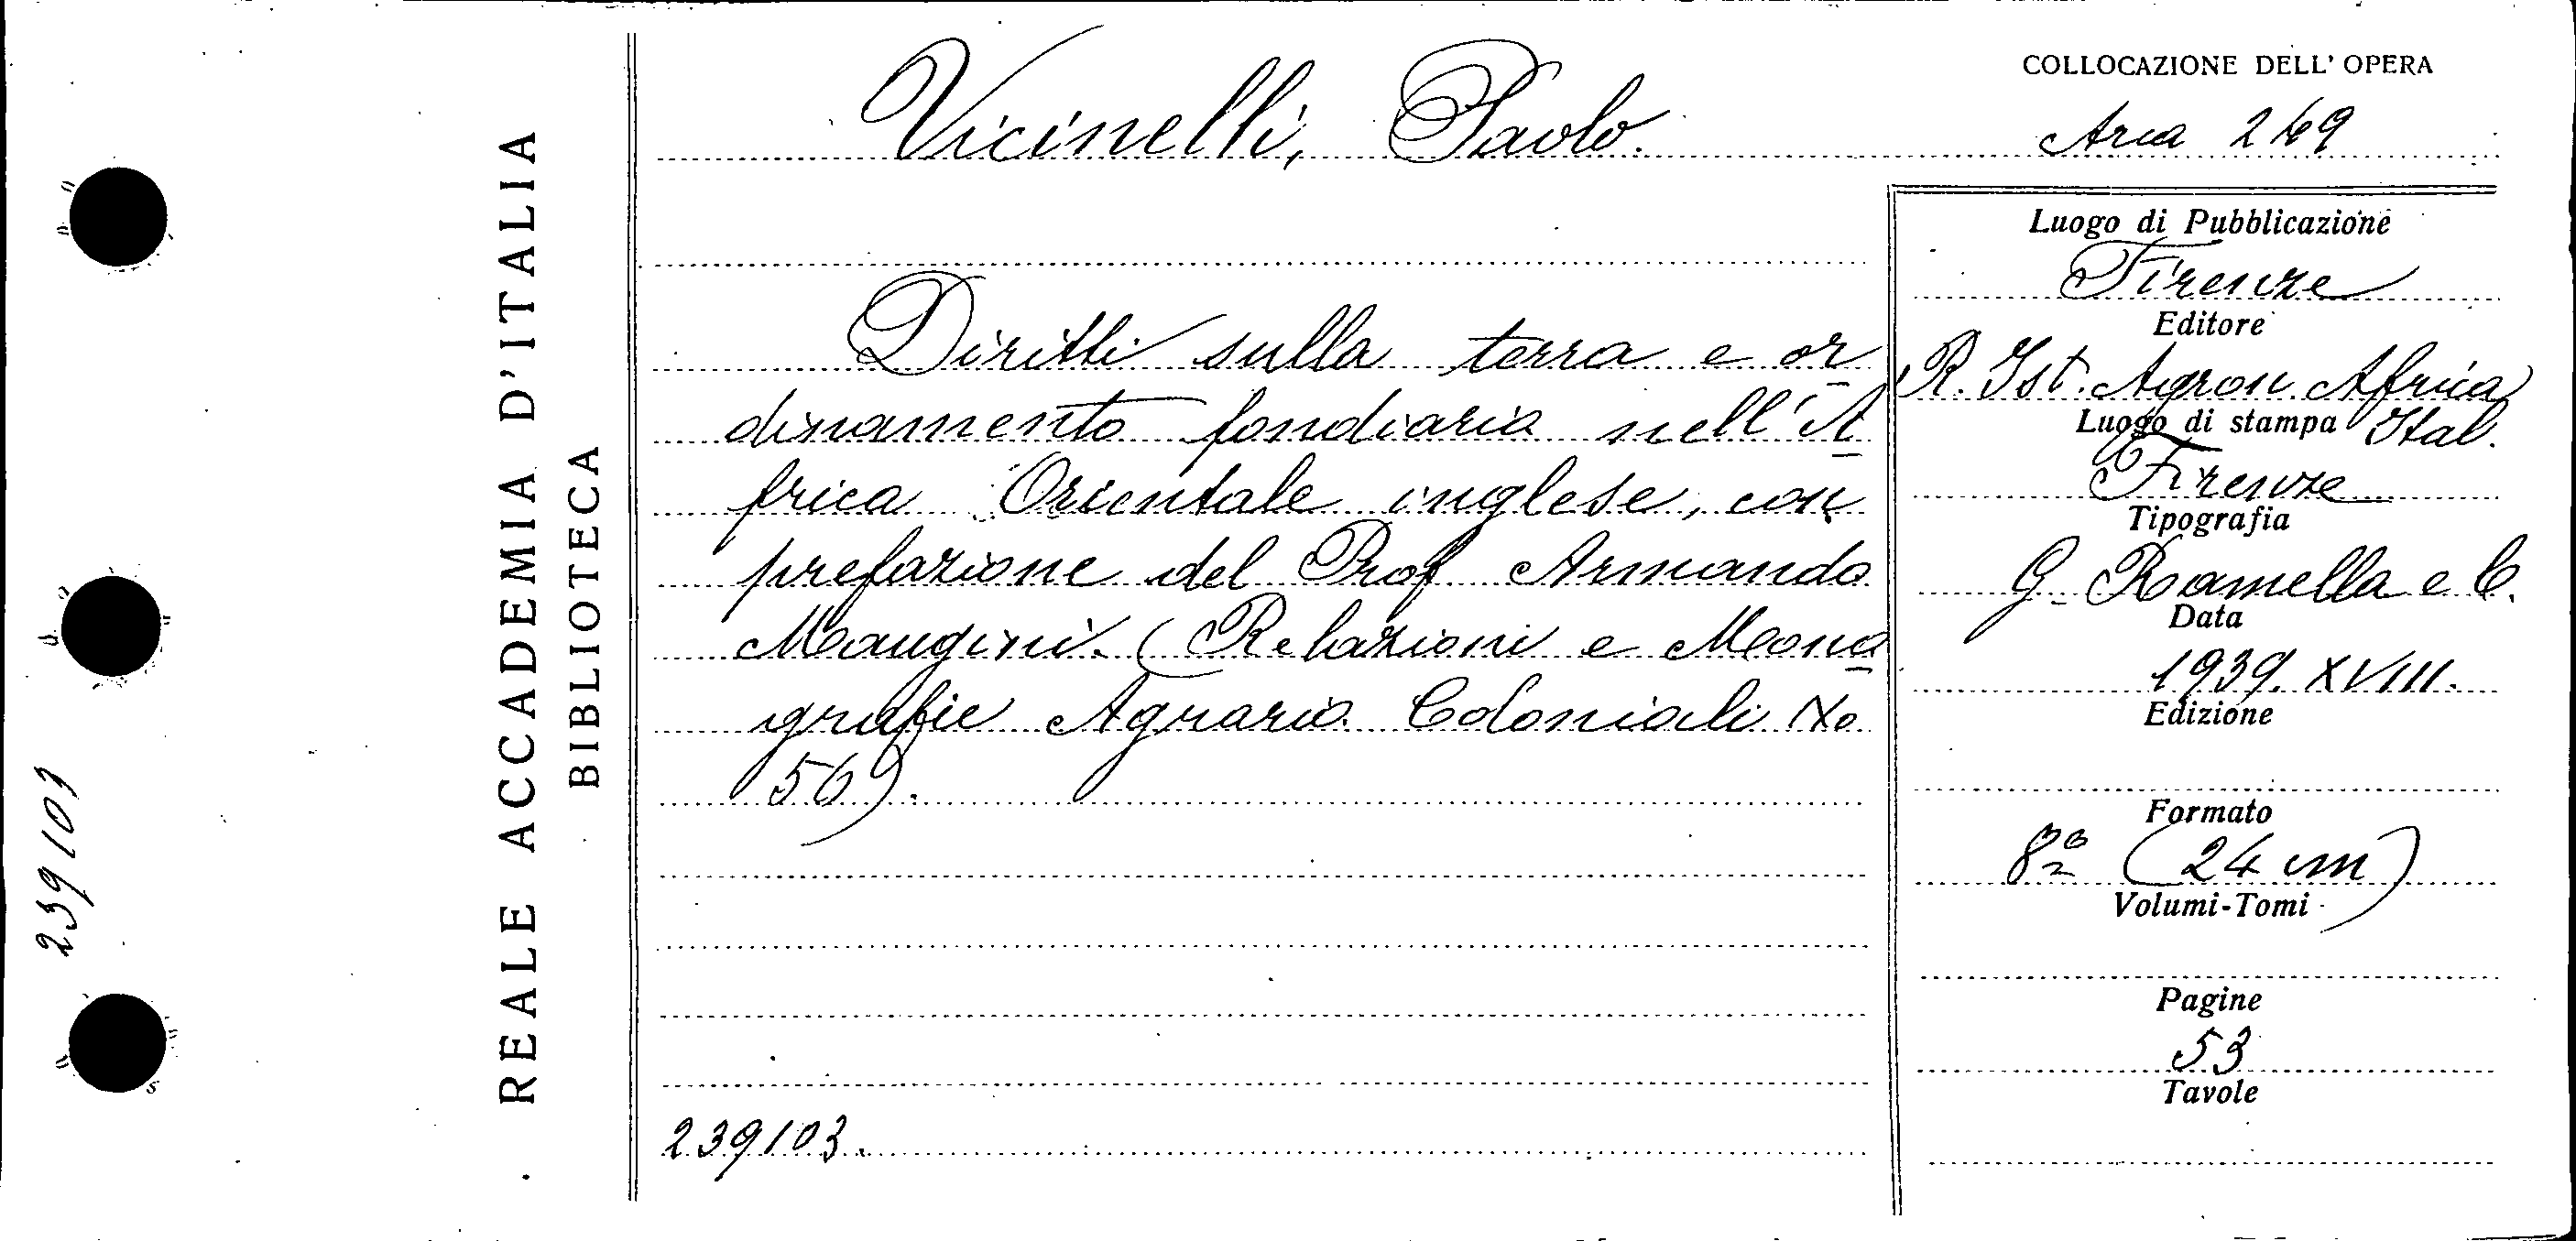 COLLOCAZIONE DELL' OPERA
Vicinelli, Paolo.
Arca 269
REALE ACCADEMIA D'ITALIA
BIBLIOTECA
239103
Diritti sulla terra e or
dinamento fondiario nell'A
frica Orientale inglese, con
prefazione del Prof Armando
Maugini. (Relazioni e Mono
grafie Agrario Coloniali No
56).
239103.
Luogo di Pubblicazione
Firenze
Editore
R. Ist. Agron. Africa
Ital.
Luogo di stampa
Firenze
Tipografia
G. Ramella e C.
Data
1939. XVIII.
Edizione
Formato
8º (24 cm)
Volumi-Tomi
Pagine
53
Tavole